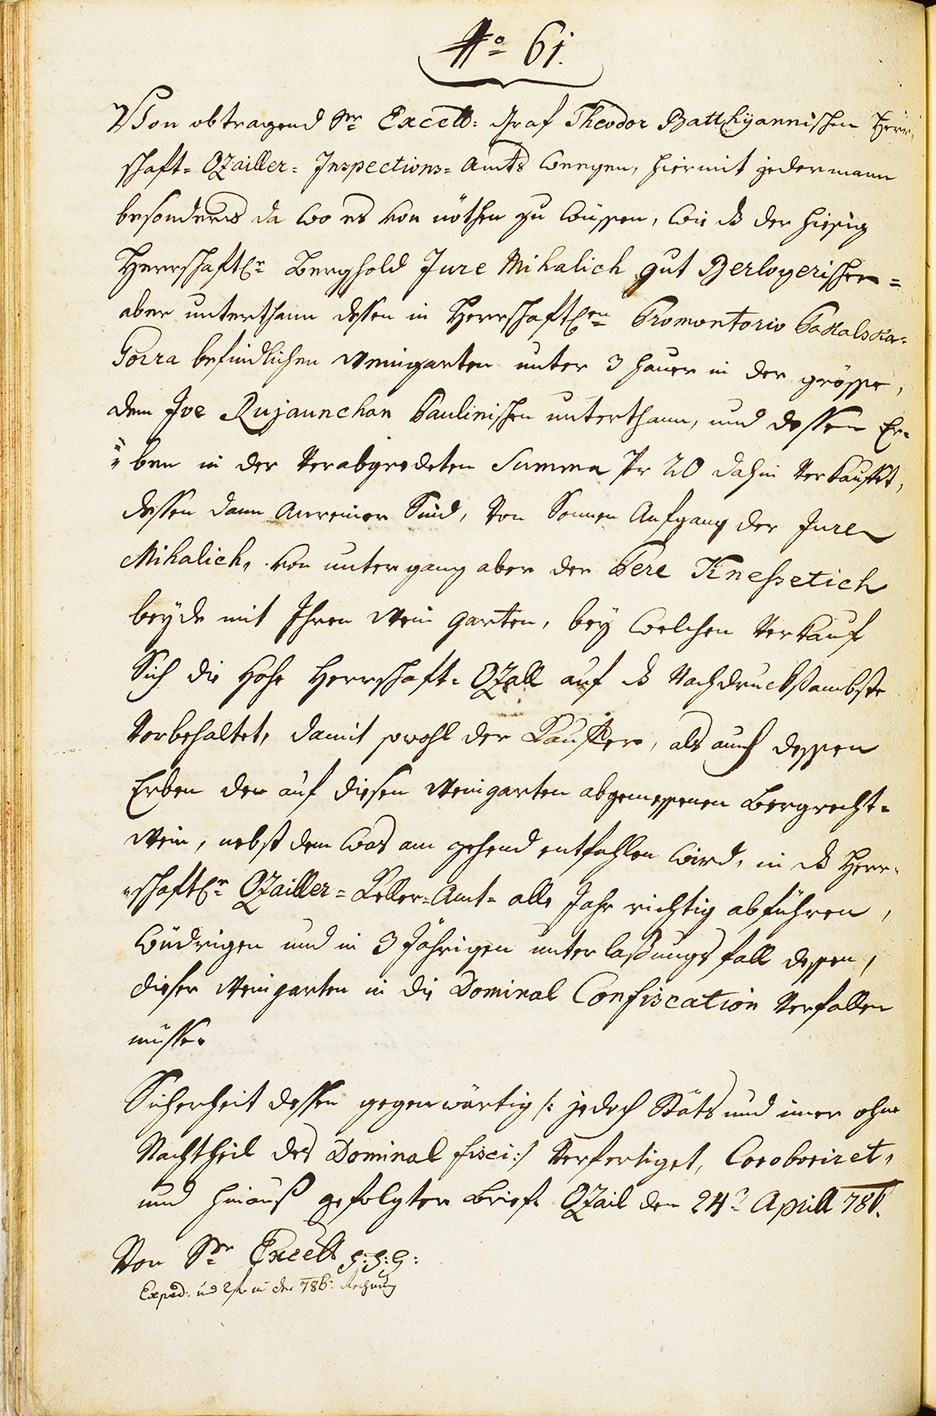 No 61.
Von obtragend Sr Excell: Graf Theodor Battkyannischen Herr-
schaft= Ozailler= Inspections= Amts wengen, hiermit jedermann
besonders da wo es von nöthen zu wissen, wie dß der hiesig
Herrschaftler Berghold Jure Mihalich gut Berloyerischer=
aber unterthann dessen in Herrschaftlen Promontorio Pakalska=
Gorra befindlichen Weingarten unter 3 hauer in der grösse,
dem Ive Rujaunchan Paulinischen unterthann, und dessen Er=
=ben in der verabgredeten Summa Pr 20 dahin verkaufft,
dessen dann Anreiner Sind, von Sonnen Aufgang der Jure
Mihalich, von untergang aber der Pere Knessetich
beyde mit Ihren Wein garten, bey welchen Verkauf
Sich die Hohe Herrschaft= Ozall auf dß Nachdrucksambste
Vorbehaltet, damit sowohl der Kauffer, als auch dessen
Erben den auf diesen Weingarten abgemessenen Bergrecht=
Wein, nebst dem was am zehend entfahlen wird, in dß Herr=
=schaftler Ozailler= Keller=Amt= alle Jahr richtig abführen,
Widrigen und in 3 Jährigen unterlaßungs fall dessen,
dieser Weingarten in die Dominal Confiscation verfallen
müsse.
Sicherheit dessen gegenwärtig /: jedoch Stäts und imer ohne
Nachtheil des Dominal fisci :/ Verfertiget, Coroboriret,
und hinauß gefolgter Brief. Ozail den 24? Aprill 786.
Von Sr Excell
Exped: in der 786: Rechnung